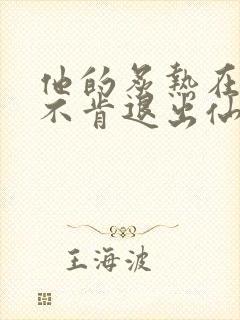 他的炙热在
不肯退出仙
王海波